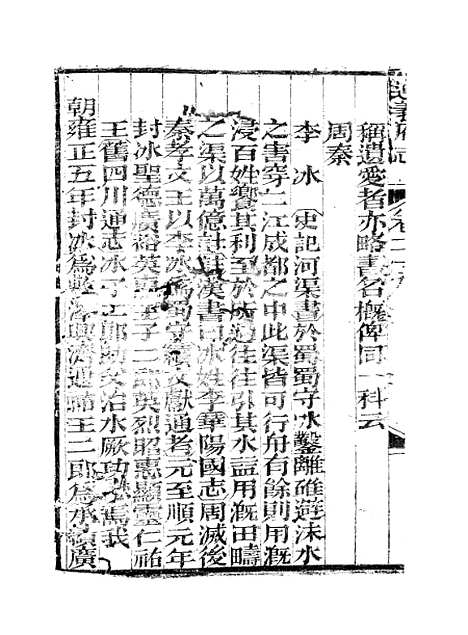 稱遺愛者亦略書名概俾同一科云
周秦
李冰 史記河渠書於蜀蜀守冰鑿離碓避沫水
之害穿二江成都之中此渠皆可行舟有餘則用溉
浸百姓饗其利至於所過往往引其水益用溉田疇
之渠以萬億計 漢書曰冰姓李華陽國志周滅後
秦孝文王以李冰為蜀守 獻通考元至順元年
封冰聖德廣裕英惠王子二郎英烈昭惠顯靈仁祐
王舊四川通志冰子二郎助父治水厥功 焉我
朝雍正五年封冰為敷澤興濟通祐王二郎為承績廣